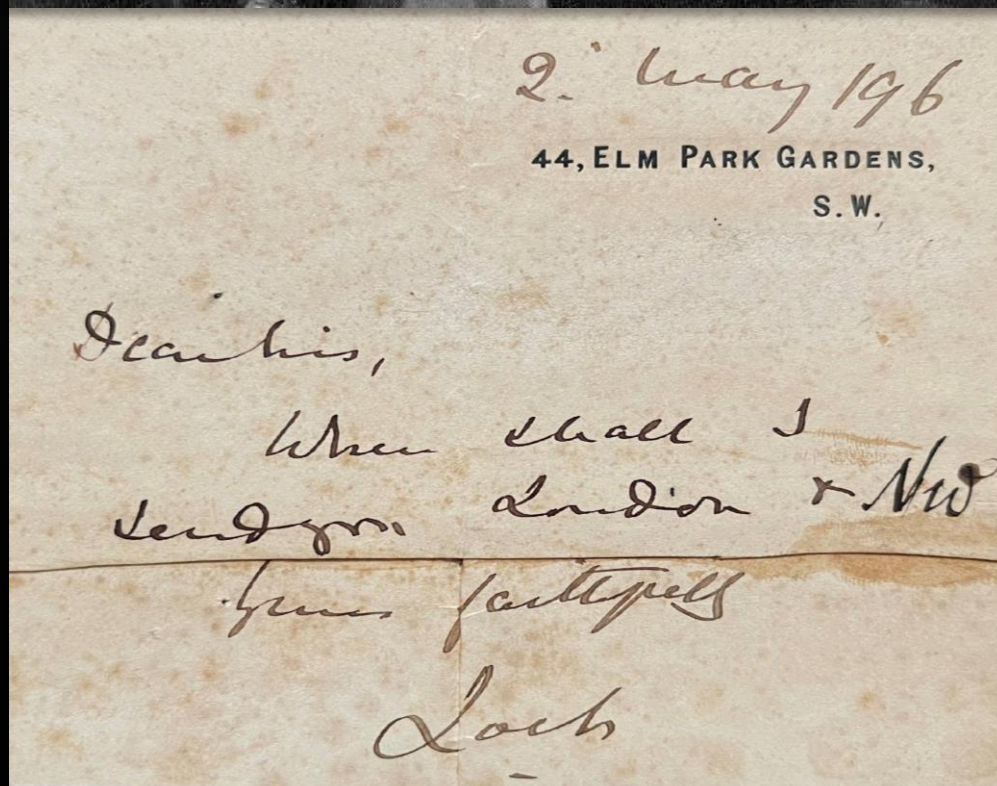 2. May 196
44, ELM PARK GARDENS,
S. W.
Dear Sir,
When shall I
send you London & NW
Yours faithfully
Loch